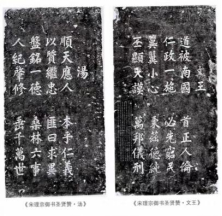 湯
順天應人 本乎仁義
以質繼忠 匪曰求異
盤銘一德 桑林六事
人紀肇修 垂千萬世
《宋理宗御书圣贤赞·汤》
文王
道被南國 首正人倫
仁政一施 必先
翼翼小心 德
丕顯 謨 萬邦儀刑
《宋理宗御书圣贤赞·文王》